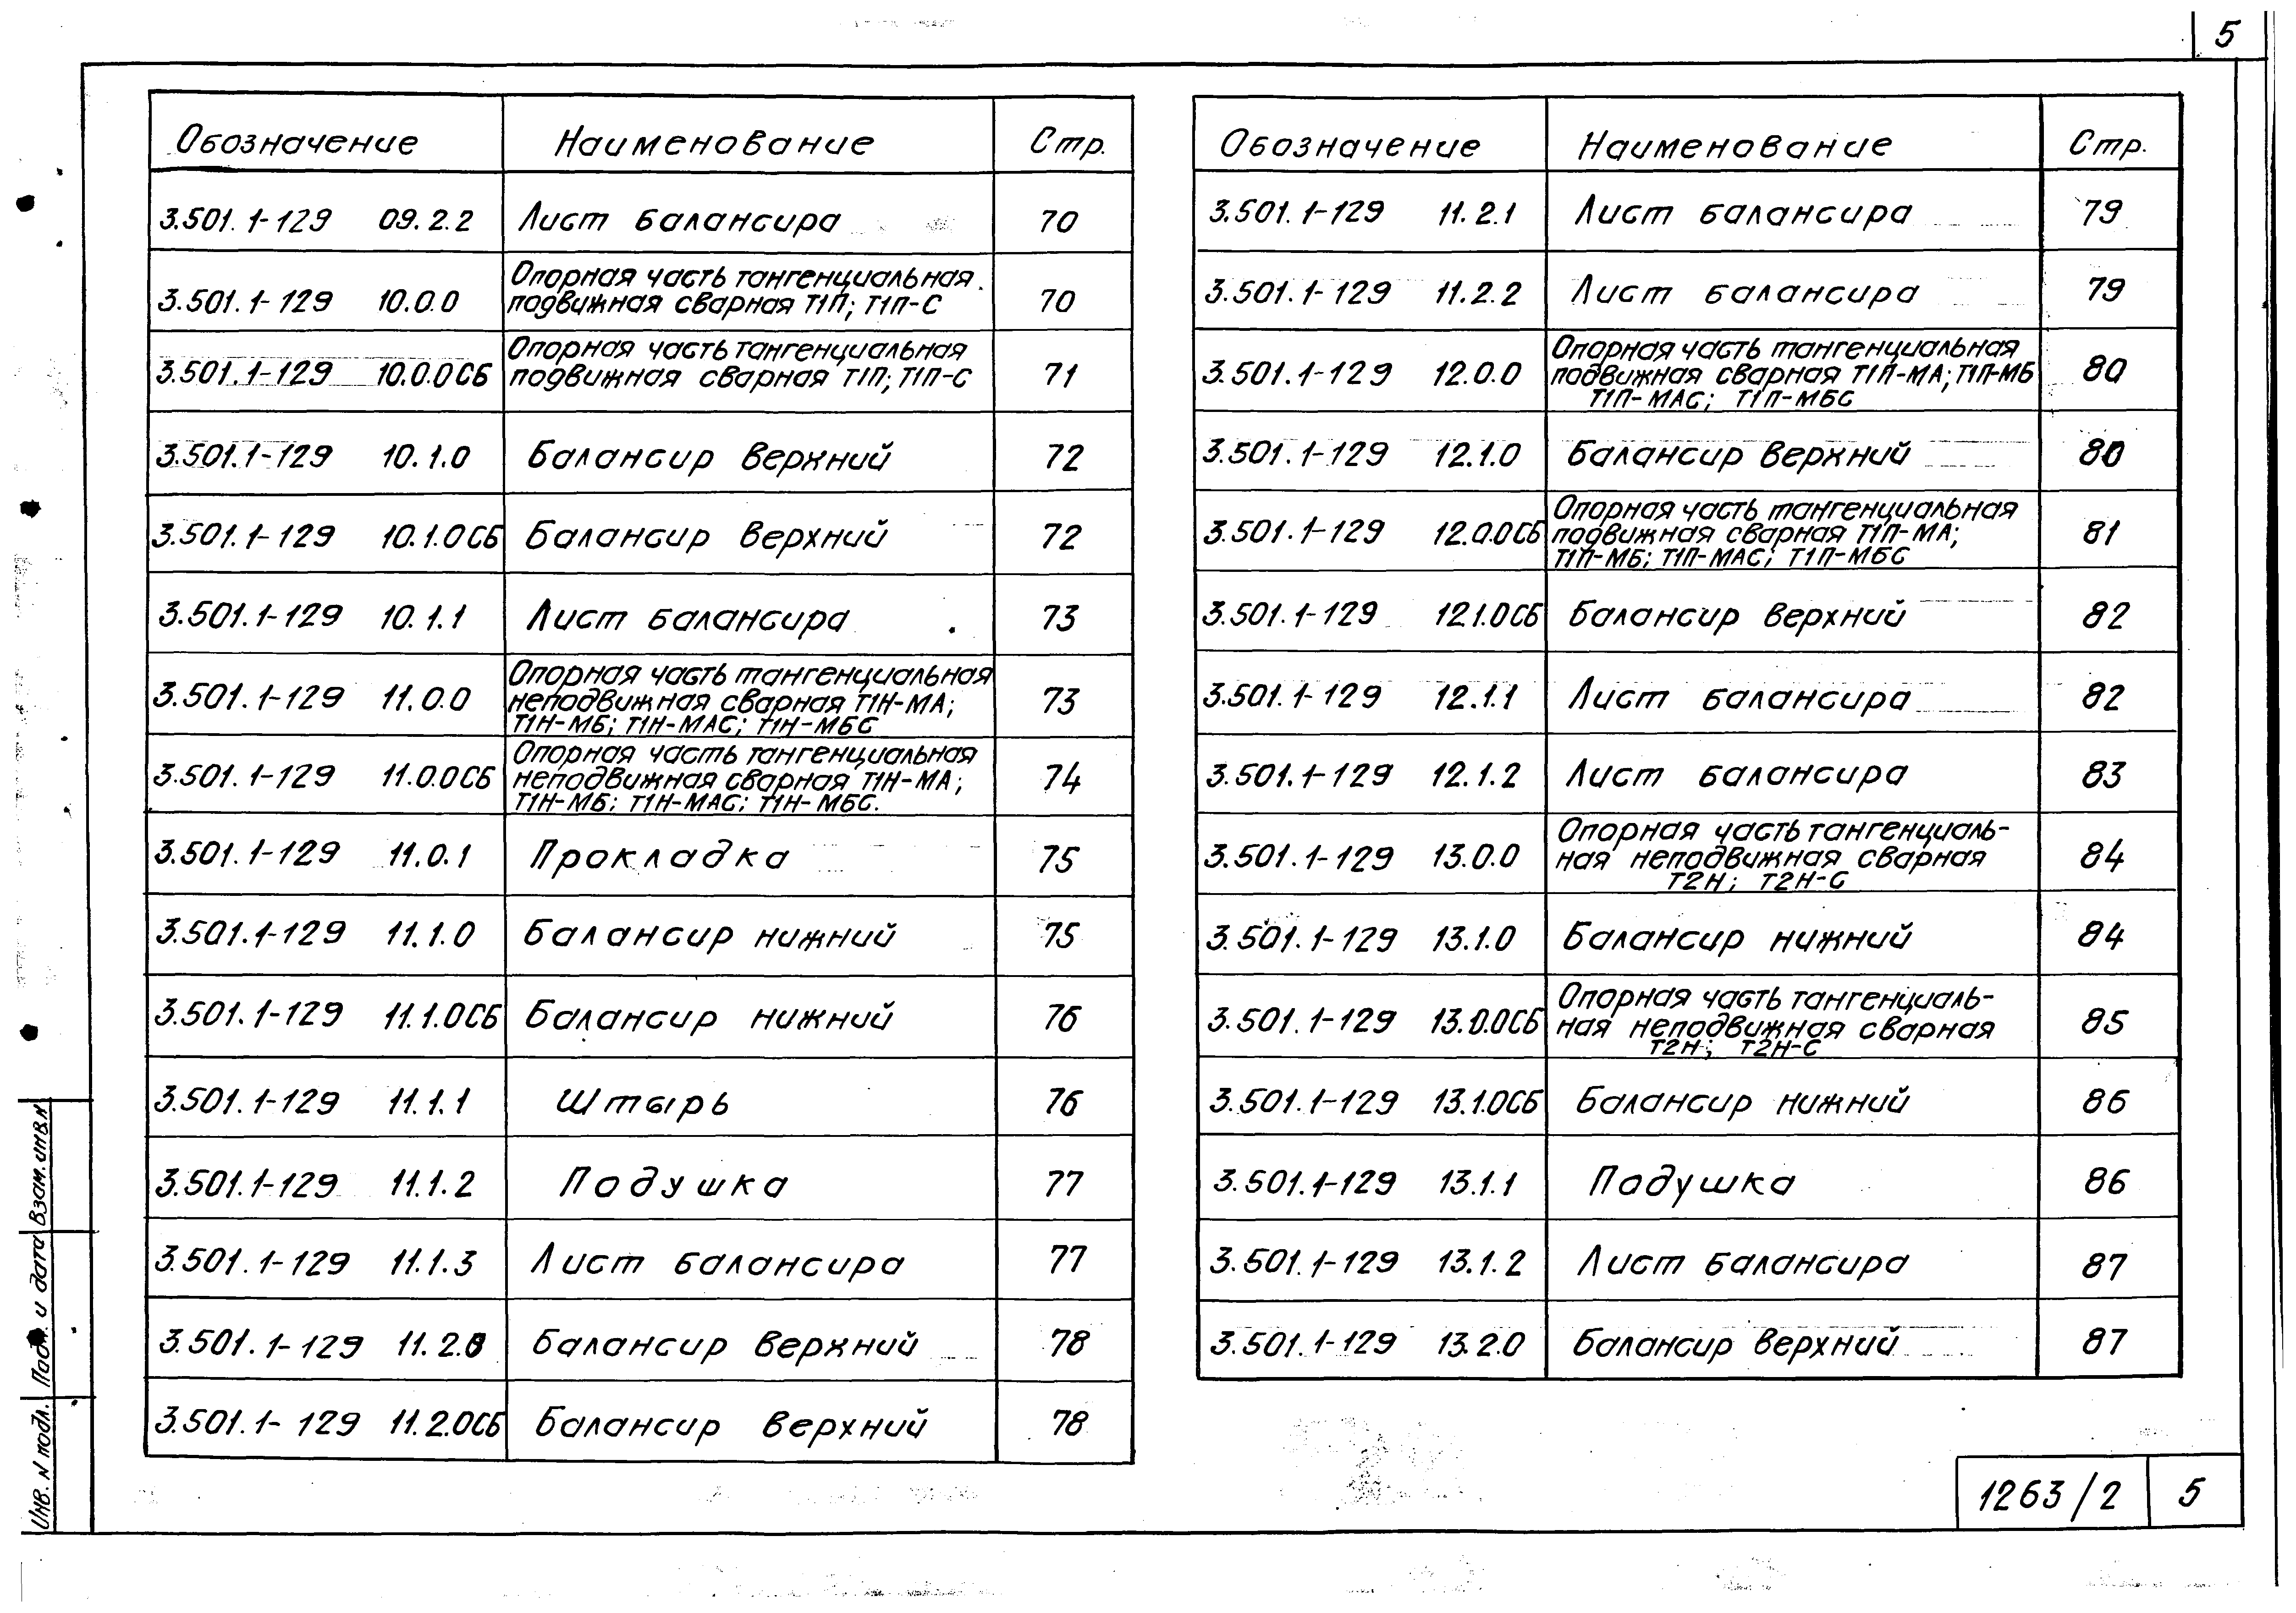 5
Обозначение Наименование Стр.
3.501.1-129 09.2.2 Лист балансира 70
3.501.1-129 10.0.0 Опорная часть тангенциальная
подвижная сварная Т1П; Т1П-С 70
3.501.1-129 10.0.0СБ Опорная часть тангенциальная
подвижная сварная Т1П; Т1П-С 71
3.501.1-129 10.1.0 Балансир верхний 72
3.501.1-129 10.1.0СБ Балансир верхний 72
3.501.1-129 10.1.1 Лист балансира 73
3.501.1-129 11.0.0 Опорная часть тангенциальная
неподвижная сварная Т1Н-МА;
Т1Н-МБ; Т1Н-МАС; Т1Н-МБС 73
3.501.1-129 11.0.0СБ Опорная часть тангенциальная
неподвижная сварная Т1Н-МА;
Т1Н-МБ; Т1Н-МАС; Т1Н-МБС. 74
3.501.1-129 11.0.1 Прокладка 75
3.501.1-129 11.1.0 Балансир нижний 75
3.501.1-129 11.1.0СБ Балансир нижний 76
3.501.1-129 11.1.1 Штырь 76
3.501.1-129 11.1.2 Подушка 77
3.501.1-129 11.1.3 Лист балансира 77
3.501.1-129 11.2.0 Балансир верхний 78
3.501.1-129 11.2.0СБ Балансир верхний 78
Обозначение Наименование Стр.
3.501.1-129 11.2.1 Лист балансира 79
3.501.1-129 11.2.2 Лист балансира 79
3.501.1-129 12.0.0 Опорная часть тангенциальная
подвижная сварная Т1П-МА; Т1П-МБ
Т1П-МАС; Т1П-МБС 80
3.501.1-129 12.1.0 Балансир верхний 80
3.501.1-129 12.0.0СБ Опорная часть тангенциальная
подвижная сварная Т1П-МА;
Т1П-МБ; Т1П-МАС; Т1П-МБС 81
3.501.1-129 12.1.0СБ Балансир верхний 82
3.501.1-129 12.1.1 Лист балансира 82
3.501.1-129 12.1.2 Лист балансира 83
3.501.1-129 13.0.0 Опорная часть тангенциаль-
ная неподвижная сварная
Т2Н; Т2Н-С 84
3.501.1-129 13.1.0 Балансир нижний 84
3.501.1-129 13.0.0СБ Опорная часть тангенциаль-
ная неподвижная сварная
Т2Н; Т2Н-С 85
3.501.1-129 13.1.0СБ Балансир нижний 86
3.501.1-129 13.1.1 Подушка 86
3.501.1-129 13.1.2 Лист балансира 87
3.501.1-129 13.2.0 Балансир верхний 87
Инв. N подл. Подп. и дата Взам. инв. N
1263/2 5